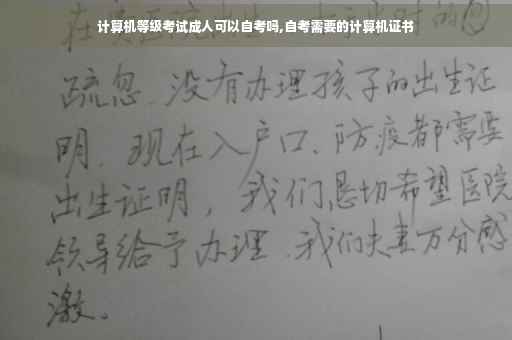 计算机等级考试成人可以自考吗,自考需要的计算机证书
疏忽.没有办理孩子的出生证
明.现在入户口、防疫都需要
出生证明，我们恳切希望医院
领导给予办理.我们夫妻万分感
激。